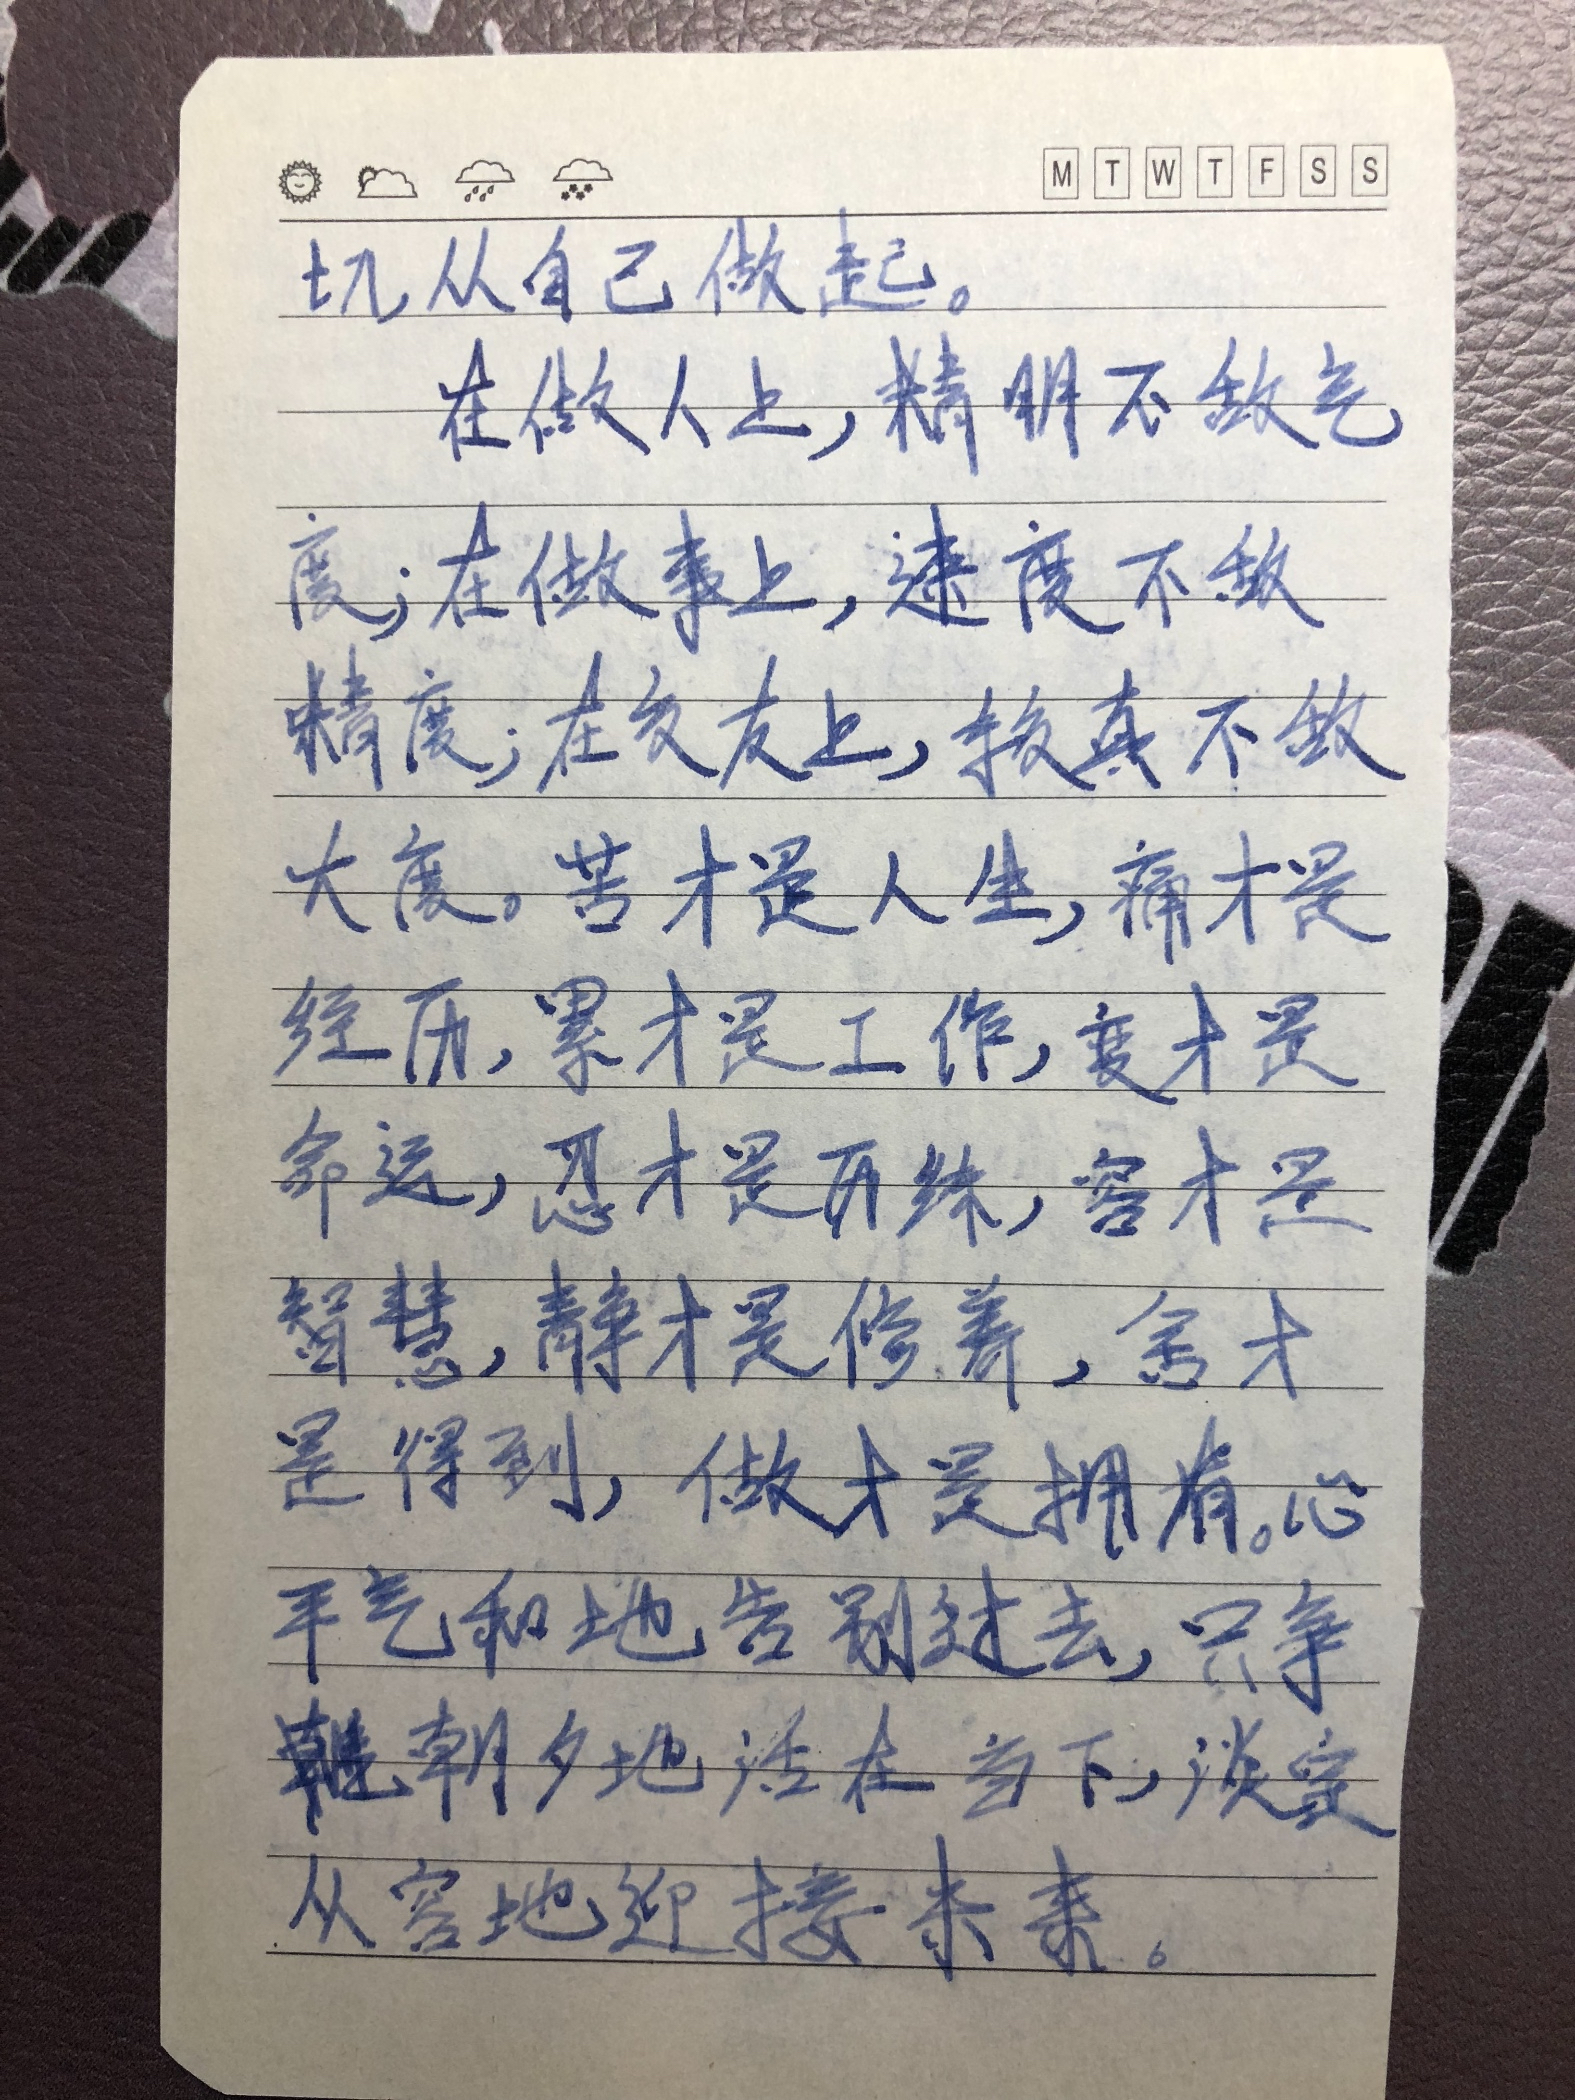 M T W T F S S
切从自己做起。
在做人上,精明不敌气
度;在做事上,速度不敌
精度;在交友上,较真不敌
大度。苦才是人生,痛才是
经历,累才是工作,变才是
命运,忍才是历练,容才是
智慧,静才是修养,舍才
是得到,做才是拥有。心
平气和地告别过去,只争
朝夕地活在当下,淡定
从容地迎接未来。